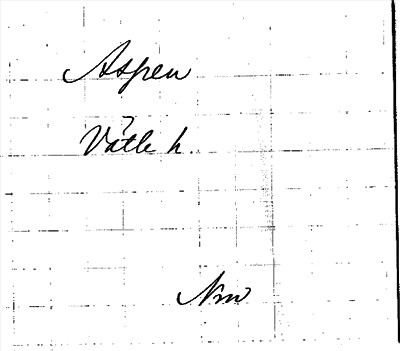 Aspen
Vätle h.
Nm